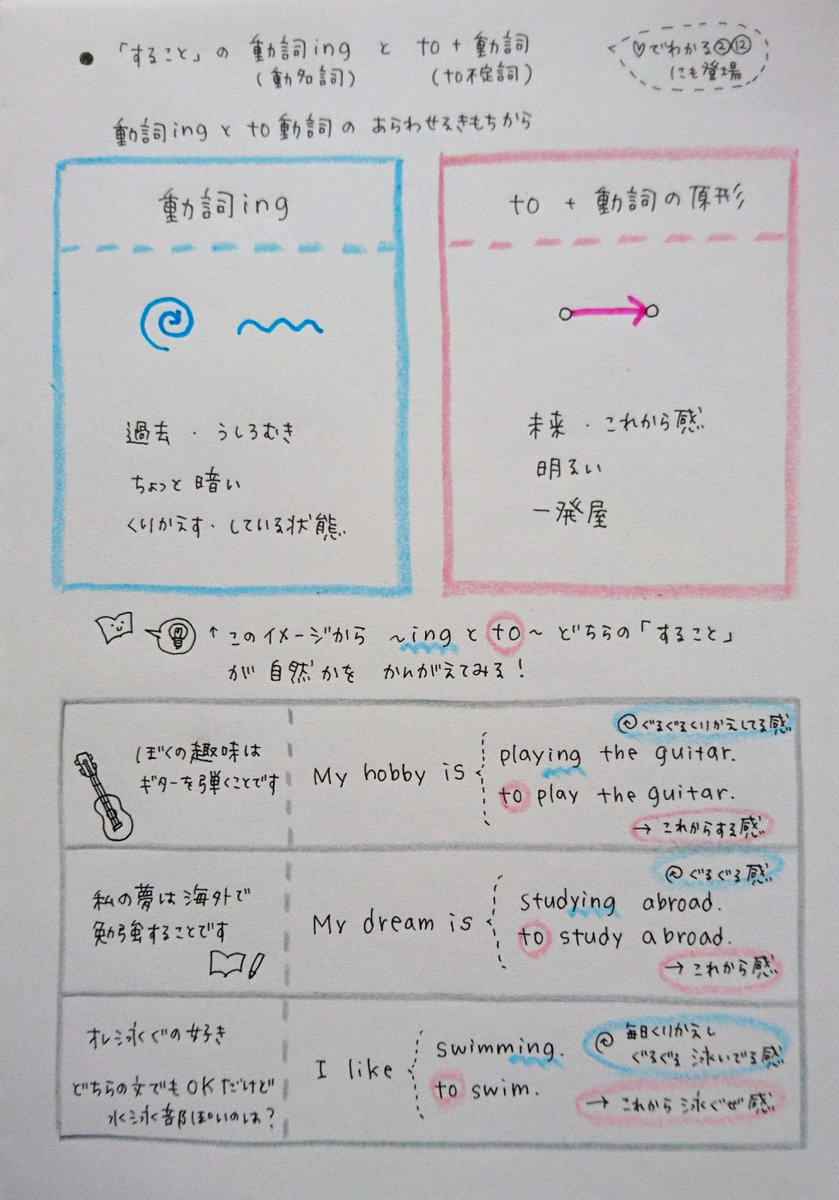 ● 「すること」の 動詞ing と to+動詞
(動名詞) (to不定詞)
♡でわかる②⑫
にも登場
動詞ingとto動詞の あらわせるきもちから
動詞ing
過去・うしろむき
ちょっと暗い
くりかえす・している状態
to + 動詞の原形
未来・これから感
明るい
一発屋
↑このイメージから 〜ingとto〜 どちらの「すること」
が自然かを かんがえてみる!
ぼくの趣味は
ギターを弾くことです
My hobby is
ぐるぐるくりかえしてる感
playing the guitar.
to play the guitar.
→ これからする感
私の夢は海外で
勉強することです
My dream is
ぐるぐる感
studying abroad.
to study abroad.
→ これから感
オレ泳ぐの好き
どちらの文でもOKだけど
水泳部ぽいのは?
I like
swimming.
to swim.
毎日くりかえし
ぐるぐる 泳いでる感
→ これから泳ぐぜ感